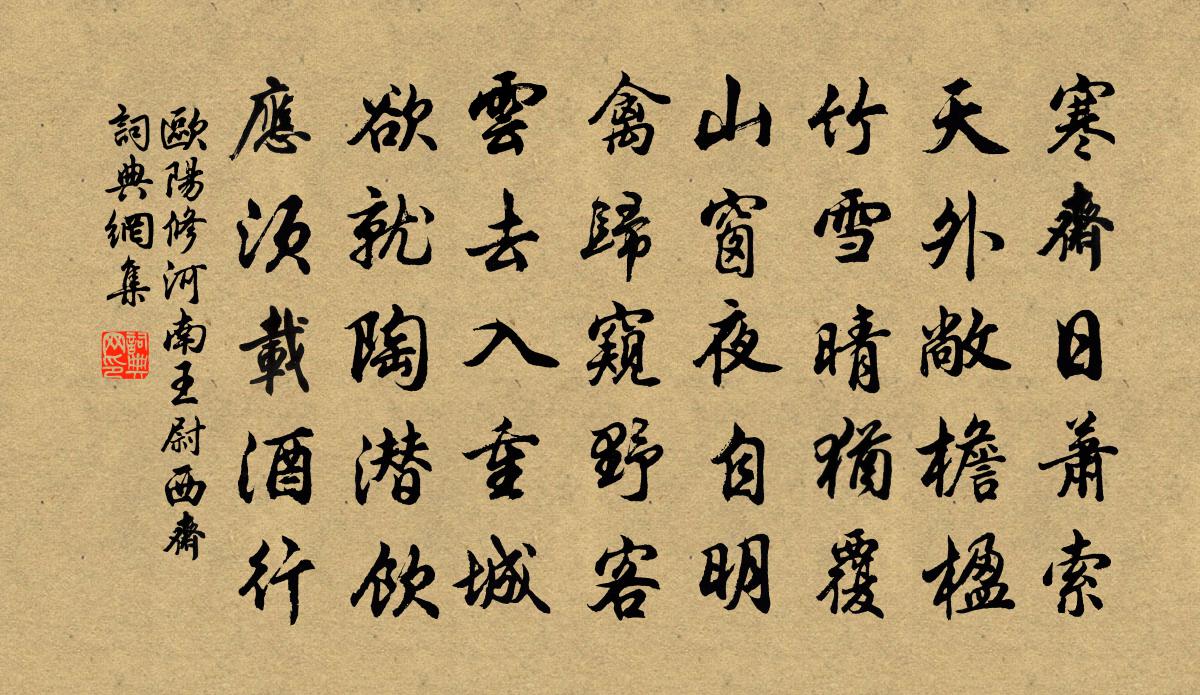 寒齋日蕭索
天外敞檐楹
竹雪晴猶覆
山窗夜自明
禽歸窺野客
雲去入重城
欲就陶潛飲
應須載酒行
歐陽修河南王尉西齋
詞典網集
詞典網印